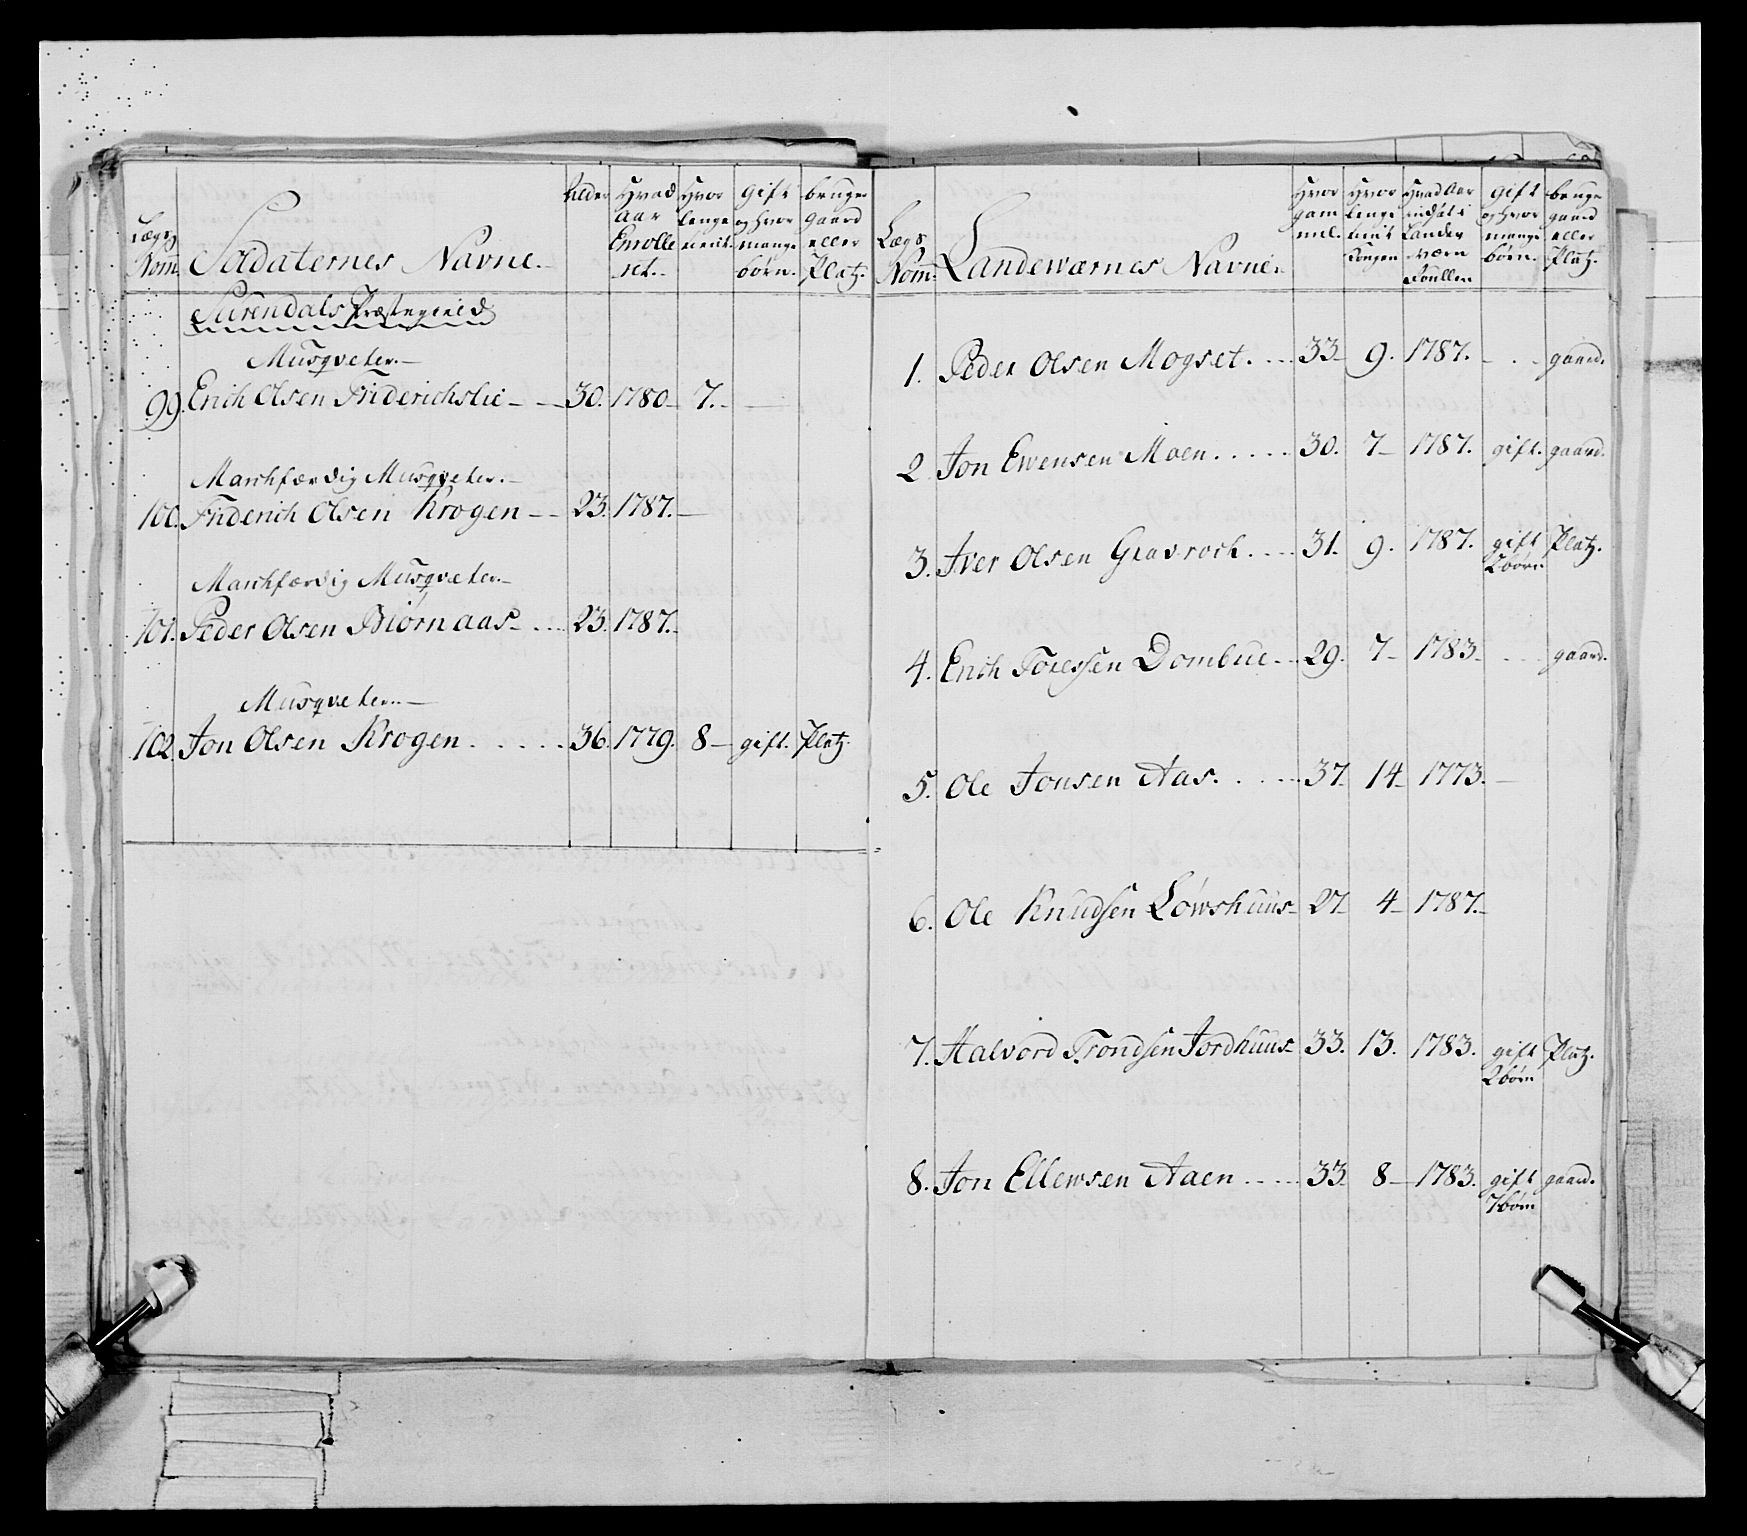 Lægs Nom̄.
Soldaternes Navne.
Alder
Hvad Aar Enrolleret.
Hvor lenge tient.
Gift og hvor mange børn.
bruger gaard eller Platz.
Surendals Præstegield
Musqveter.
99. Erich Olsen Friderichslie - - 30. 1780 7.
Marchfærdig Musqveter.
100. Friderich Olsen Krogen - - 23. 1787.
Marchfærdig Musqveter.
101. Peder Olsen Biørnaas - ... 23. 1787.
Musqveter.
102. Jon Olsen Krogen ..... 36. 1779. 8 gift. Platz.
Lægs Nom̄.
Landewærnes Navne.
Hvor gammel.
Hvor lenge tient Kongen
Hvad Aar indsat i Landeværn Roullen
Gift og hvor mange børn.
bruger gaard eller Platz.
1. Peder Olsen Mogset. ... 33 9. 1787. gaard.
2. Jon Ewensen Moen ..... 30. 7 1787. gift. gaard.
3. Iver Olsen Gravrock .... 31. 9. 1787. gift Platz.
2 børn
4. Erich Toressen Dombue ... 29. 7 1783. gaard.
5. Ole Jonsen Aas. .... 37. 14 1773.
6. Ole Knudsen Løwshuus 27 4 1787.
7. Halvord Trondsen Jordhuus 33. 13. 1783. gift Platz.
2 børn
8. Jon Ellewsen Aaen ..... 33. 8 1783. gift gaard.
7 børn